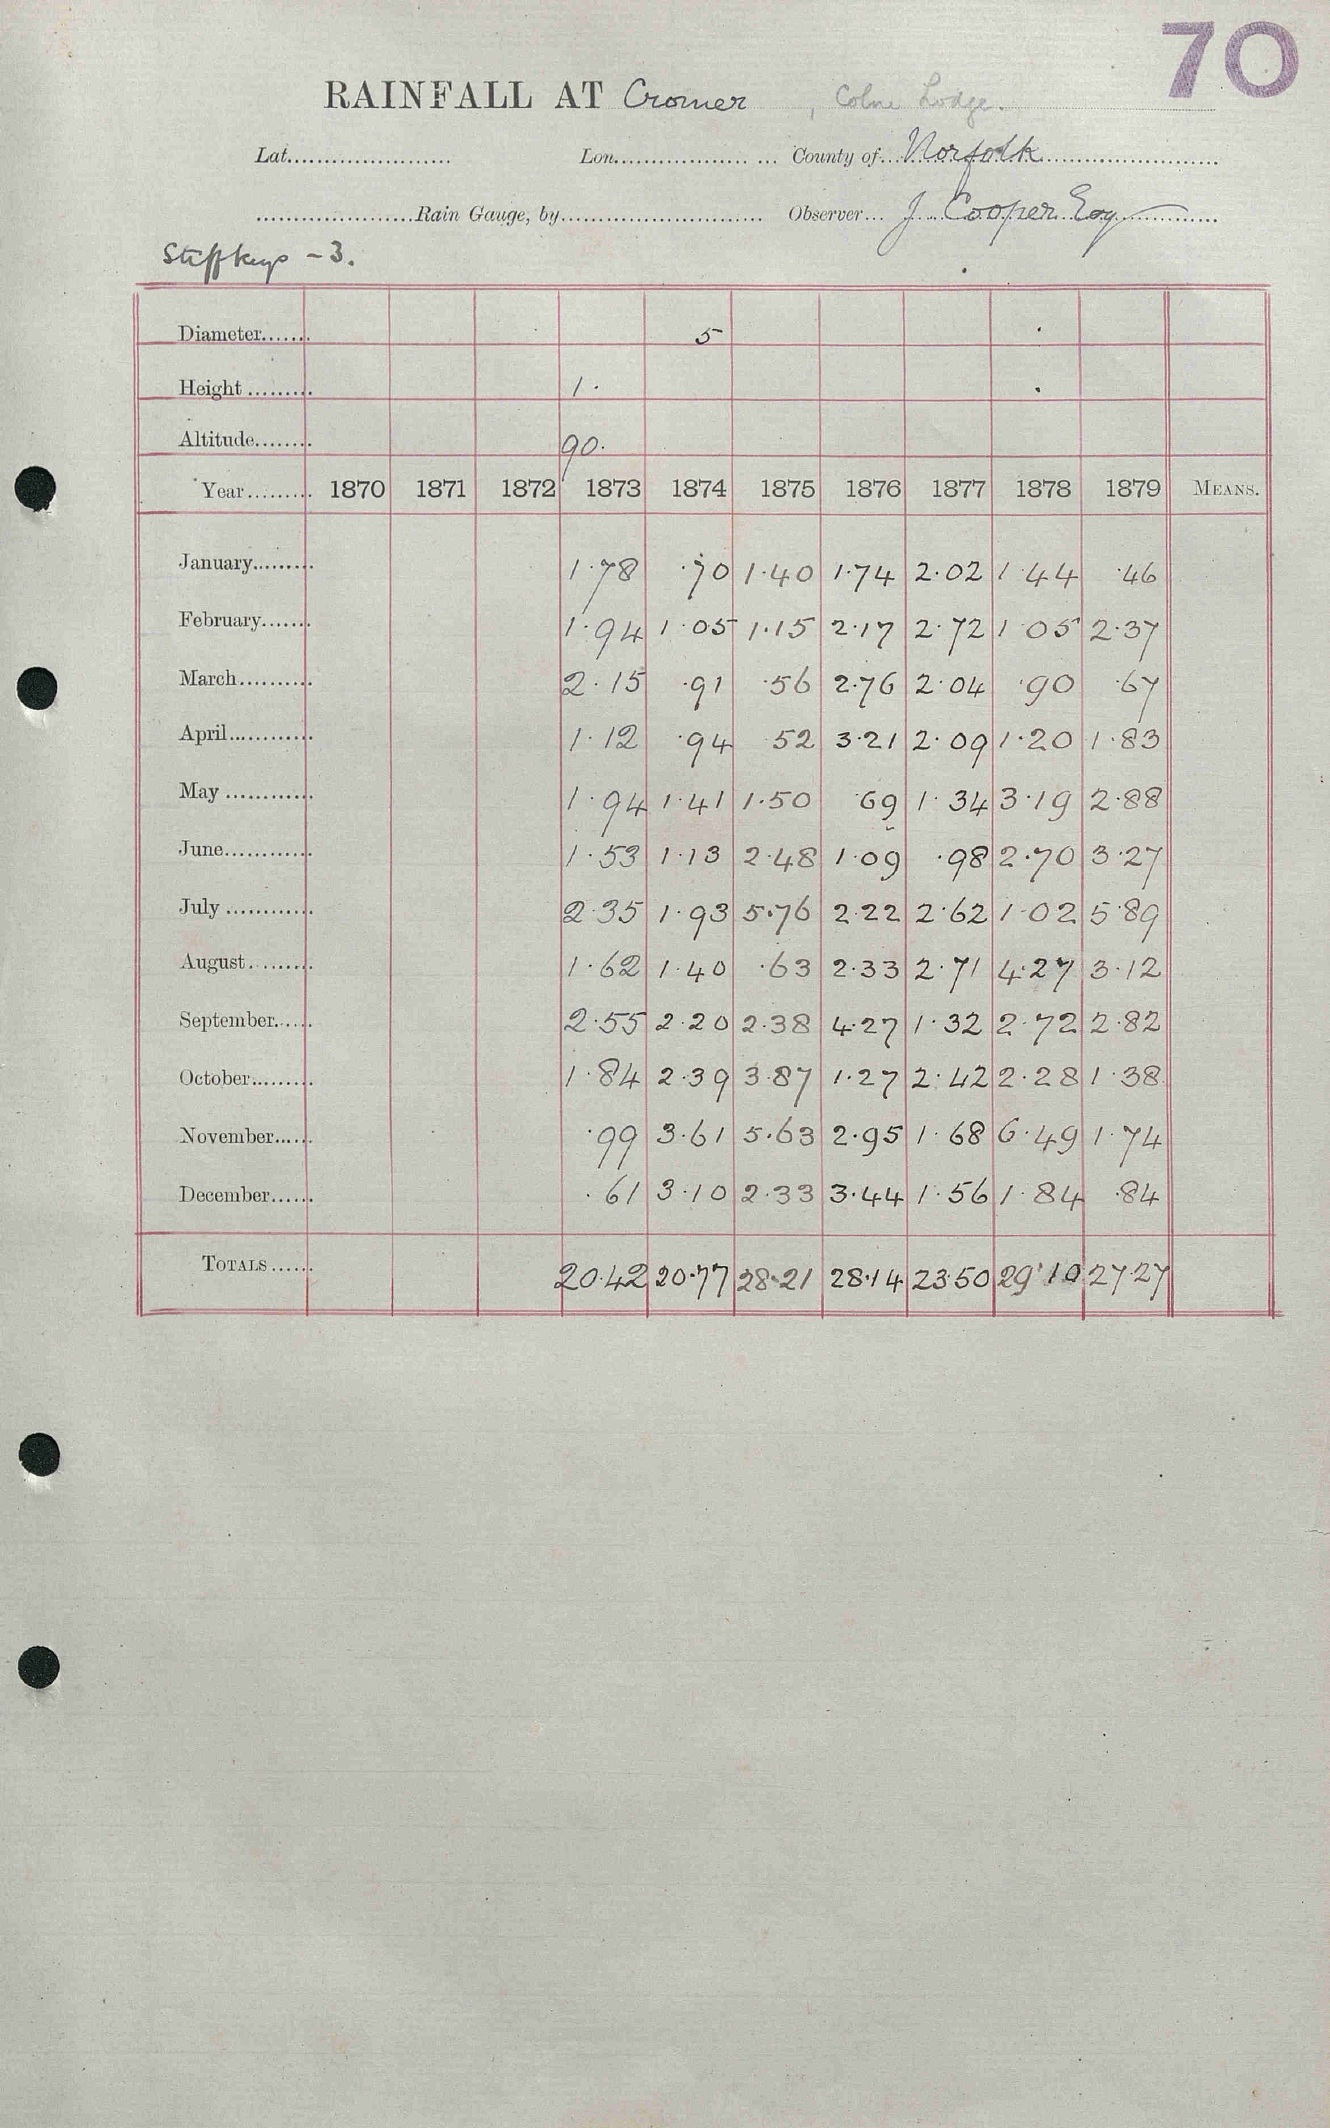 70
RAINFALL AT Cromer, Colne Lodge.
Lat...................... Lon................... ... County of...Norfolk.........................
......................Rain Gauge, by............................. Observer... J. Cooper Esq..........
Stiffkeys - 3.
Diameter....... 5
Height ......... 1.
Altitude........ 90.
Year......... 1870 1871 1872 1873 1874 1875 1876 1877 1878 1879 MEANS.
January......... 1.78 .70 1.40 1.74 2.02 1.44 .46
February....... 1.94 1.05 1.15 2.17 2.72 1.05 2.37
March.......... 2.15 .91 .56 2.76 2.04 .90 .67
April............ 1.12 .94 52 3.21 2.09 1.20 1.83
May ............ 1.94 1.41 1.50 .69 1.34 3.19 2.88
June............ 1.53 1.13 2.48 1.09 .98 2.70 3.27
July ............ 2.35 1.93 5.76 2.22 2.62 1.02 5.89
August......... 1.62 1.40 .63 2.33 2.71 4.27 3.12
September...... 2.55 2.20 2.38 4.27 1.32 2.72 2.82
October......... 1.84 2.39 3.87 1.27 2.42 2.28 1.38
November...... .99 3.61 5.63 2.95 1.68 6.49 1.74
December...... .61 3.10 2.33 3.44 1.56 1.84 .84
TOTALS...... 20.42 20.77 28.21 28.14 23.50 29.10 27.27